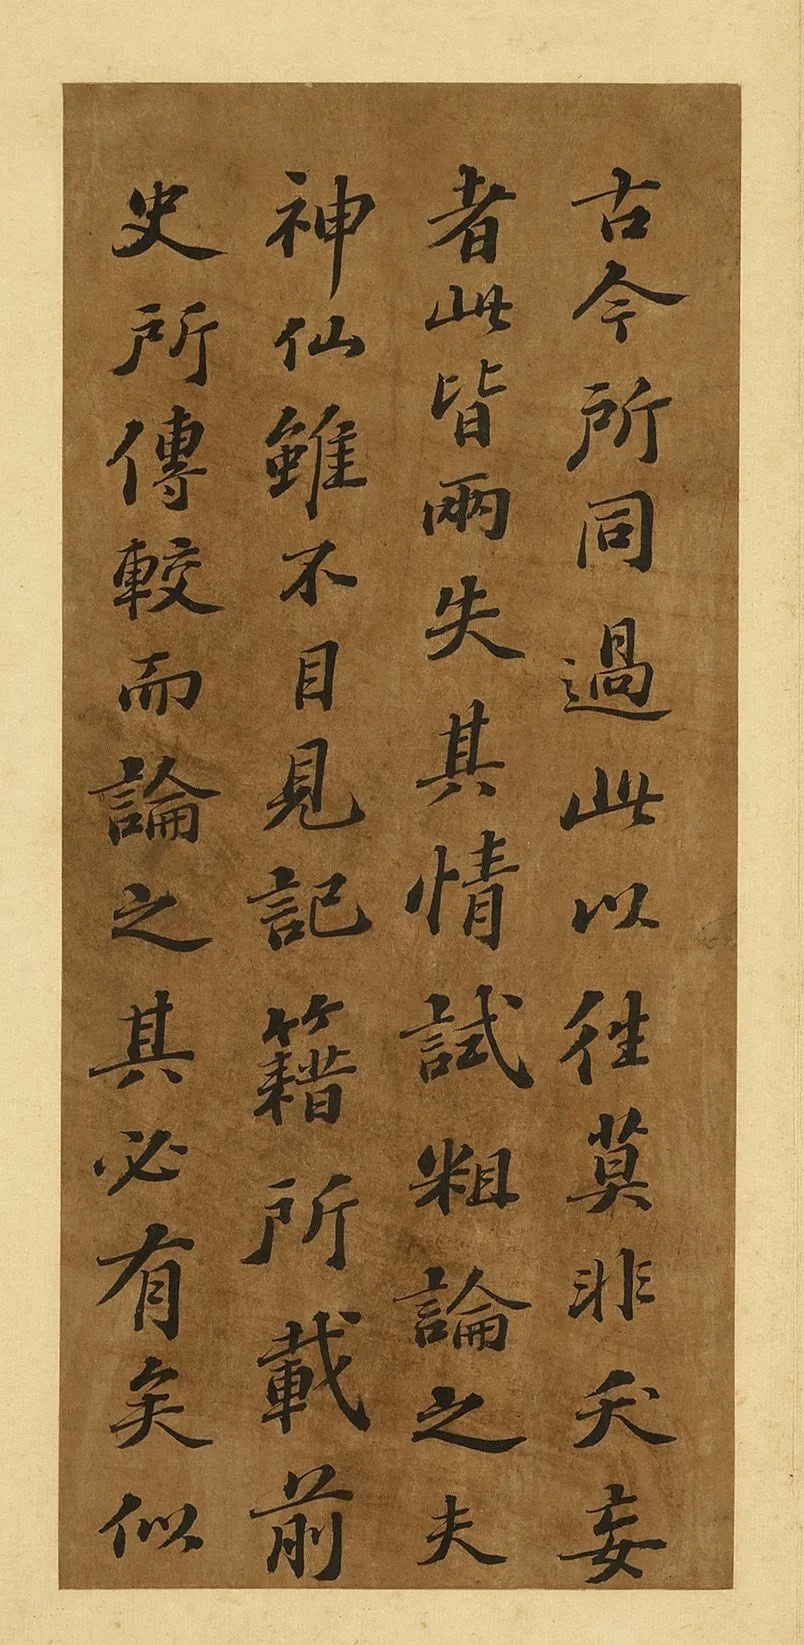 古今所同過此以往莫非夭妄
者此皆兩失其情試粗論之夫
神仙雖不目見記籍所載前
史所傳較而論之其必有矣似